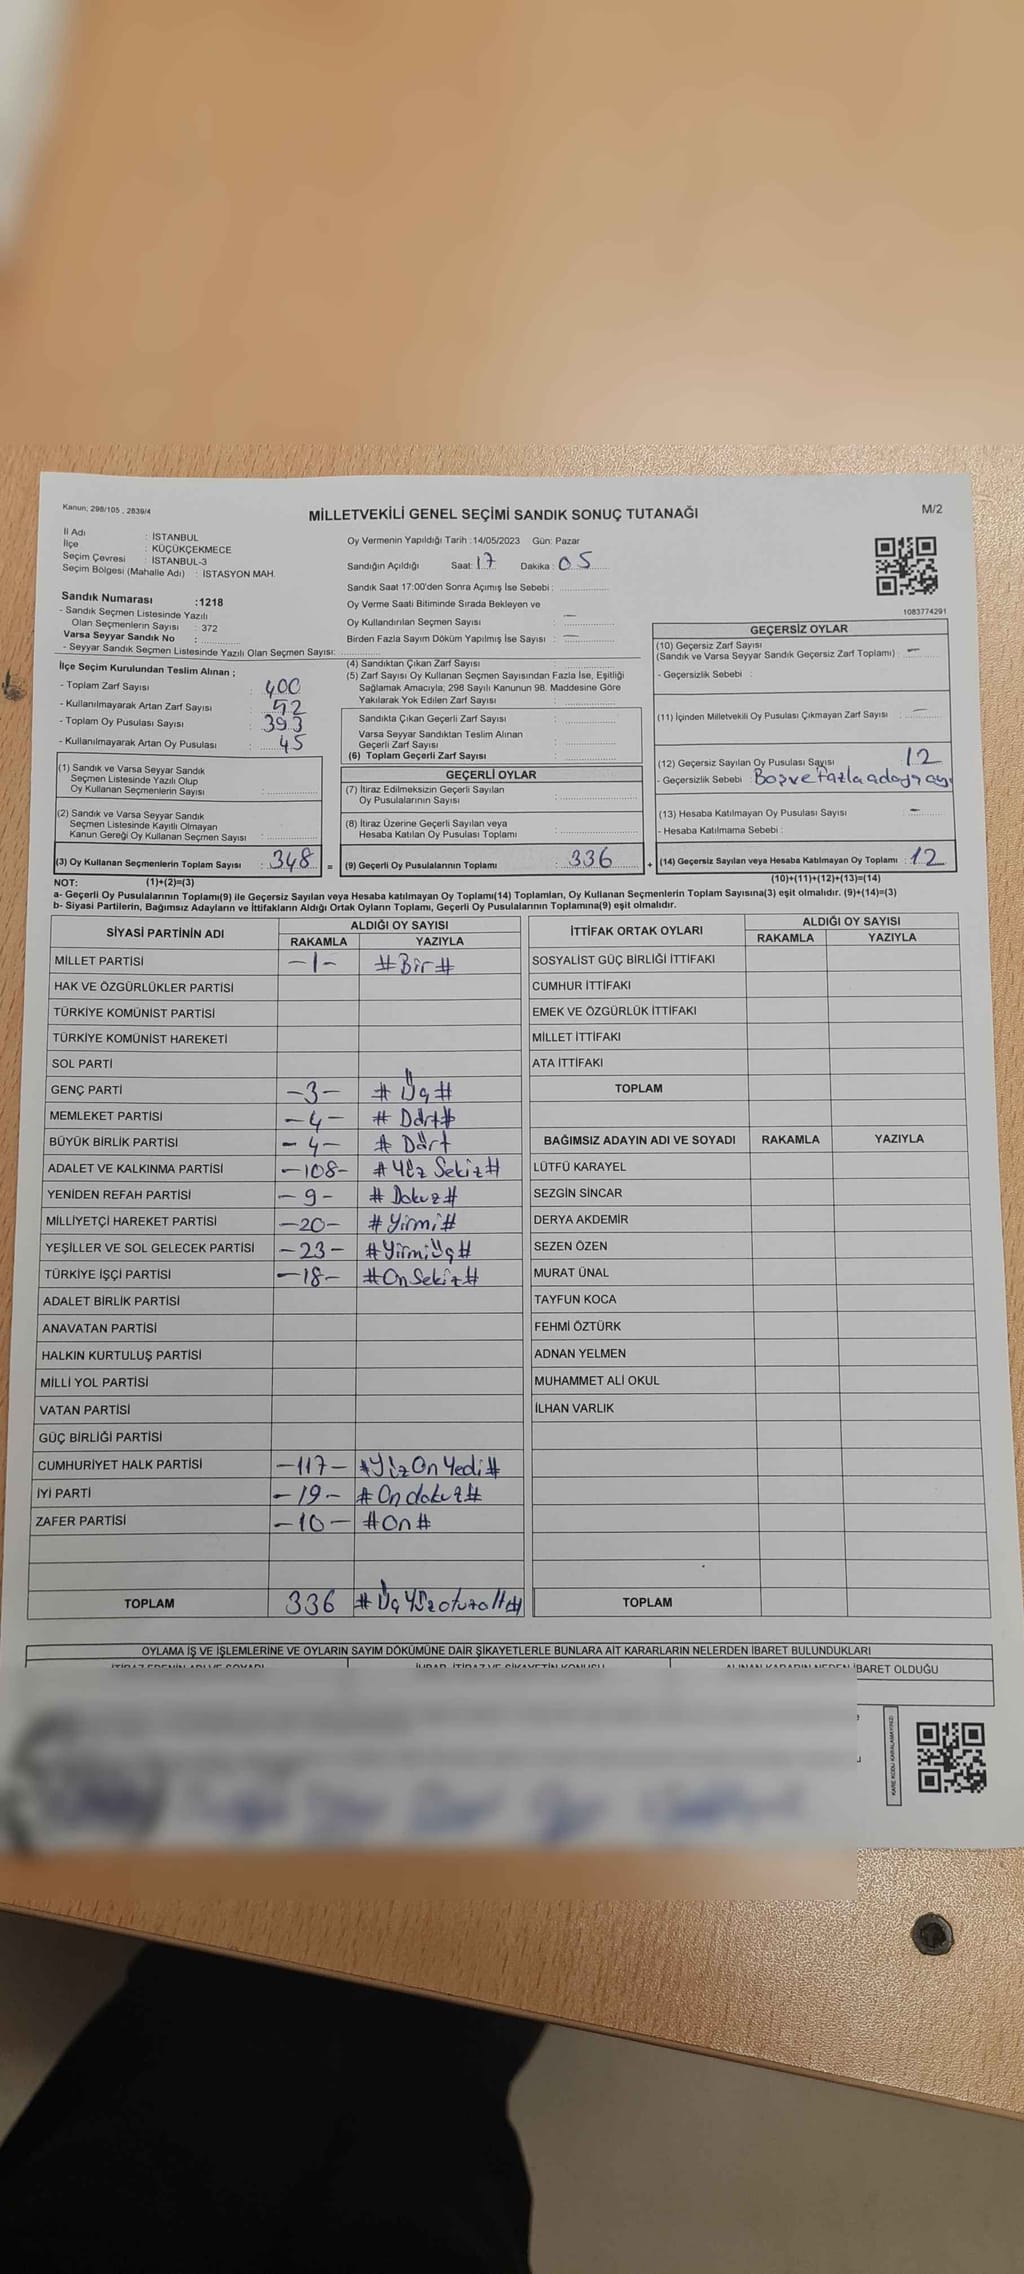 Kanun; 298/105 , 2839/4
MİLLETVEKİLİ GENEL SEÇİMİ SANDIK SONUÇ TUTANAĞI
M/2
İl Adı : İSTANBUL
İlçe : KÜÇÜKÇEKMECE
Seçim Çevresi : İSTANBUL-3
Seçim Bölgesi (Mahalle Adı) : İSTASYON MAH.
Sandık Numarası :1218
- Sandık Seçmen Listesinde Yazılı
Olan Seçmenlerin Sayısı : 372
Varsa Seyyar Sandık No :
- Seyyar Sandık Seçmen Listesinde Yazılı Olan Seçmen Sayısı:
Oy Vermenin Yapıldığı Tarih :14/05/2023 Gün: Pazar
Sandığın Açıldığı Saat: 17 Dakika : 05
Sandık Saat 17:00'den Sonra Açımış İse Sebebi :
Oy Verme Saati Bitiminde Sırada Bekleyen ve
Oy Kullandırılan Seçmen Sayısı : —
Birden Fazla Sayım Döküm Yapılmış İse Sayısı : —
1083774291
İlçe Seçim Kurulundan Teslim Alınan ;
- Toplam Zarf Sayısı : 400
- Kullanılmayarak Artan Zarf Sayısı : 52
- Toplam Oy Pusulası Sayısı : 393
- Kullanılmayarak Artan Oy Pusulası : 45
(1) Sandık ve Varsa Seyyar Sandık
Seçmen Listesinde Yazılı Olup
Oy Kullanan Seçmenlerin Sayısı :
(2) Sandık ve Varsa Seyyar Sandık
Seçmen Listesinde Kayıtlı Olmayan
Kanun Gereği Oy Kullanan Seçmen Sayısı :
(3) Oy Kullanan Seçmenlerin Toplam Sayısı : 348 =
(4) Sandıktan Çıkan Zarf Sayısı :
(5) Zarf Sayısı Oy Kullanan Seçmen Sayısından Fazla İse, Eşitliği
Sağlamak Amacıyla; 298 Sayılı Kanunun 98. Maddesine Göre
Yakılarak Yok Edilen Zarf Sayısı :
Sandıkta Çıkan Geçerli Zarf Sayısı :
Varsa Seyyar Sandıktan Teslim Alınan
Geçerli Zarf Sayısı :
(6) Toplam Geçerli Zarf Sayısı :
GEÇERLİ OYLAR
(7) İtiraz Edilmeksizin Geçerli Sayılan
Oy Pusulalarının Sayısı :
(8) İtiraz Üzerine Geçerli Sayılan veya
Hesaba Katılan Oy Pusulası Toplamı :
(9) Geçerli Oy Pusulalarının Toplamı : 336 +
GEÇERSİZ OYLAR
(10) Geçersiz Zarf Sayısı
(Sandık ve Varsa Seyyar Sandık Geçersiz Zarf Toplamı) : —
- Geçersizlik Sebebi :
(11) İçinden Milletvekili Oy Pusulası Çıkmayan Zarf Sayısı : —
(12) Geçersiz Sayılan Oy Pusulası Sayısı : 12
- Geçersizlik Sebebi : Boş ve fazla adaya oy
(13) Hesaba Katılmayan Oy Pusulası Sayısı : —
- Hesaba Katılmama Sebebi :
(14) Geçersiz Sayılan veya Hesaba Katılmayan Oy Toplamı : 12
NOT: (1)+(2)=(3)
(10)+(11)+(12)+(13)=(14)
a- Geçerli Oy Pusulalarının Toplamı(9) ile Geçersiz Sayılan veya Hesaba katılmayan Oy Toplamı(14) Toplamları, Oy Kullanan Seçmenlerin Toplam Sayısına(3) eşit olmalıdır. (9)+(14)=(3)
b- Siyasi Partilerin, Bağımsız Adayların ve İttifakların Aldığı Ortak Oyların Toplamı, Geçerli Oy Pusulalarının Toplamına(9) eşit olmalıdır.
SİYASİ PARTİNİN ADI ALDIĞI OY SAYISI
RAKAMLA YAZIYLA
MİLLET PARTİSİ —1— #Bir#
HAK VE ÖZGÜRLÜKLER PARTİSİ
TÜRKİYE KOMÜNİST PARTİSİ
TÜRKİYE KOMÜNİST HAREKETİ
SOL PARTİ
GENÇ PARTİ —3— #Üç#
MEMLEKET PARTİSİ —4— #Dört#
BÜYÜK BİRLİK PARTİSİ —4— #Dört
ADALET VE KALKINMA PARTİSİ —108— #Yüz Sekiz#
YENİDEN REFAH PARTİSİ —9— #Dokuz#
MİLLİYETÇİ HAREKET PARTİSİ —20— #Yirmi#
YEŞİLLER VE SOL GELECEK PARTİSİ —23— #YirmiÜç#
TÜRKİYE İŞÇİ PARTİSİ —18— #OnSekiz#
ADALET BİRLİK PARTİSİ
ANAVATAN PARTİSİ
HALKIN KURTULUŞ PARTİSİ
MİLLİ YOL PARTİSİ
VATAN PARTİSİ
GÜÇ BİRLİĞİ PARTİSİ
CUMHURİYET HALK PARTİSİ —117— #YüzOnYedi#
İYİ PARTİ —19— #Ondokuz#
ZAFER PARTİSİ —10— #On#
TOPLAM 336 #ÜçYüzotuzaltı#
İTTİFAK ORTAK OYLARI ALDIĞI OY SAYISI
RAKAMLA YAZIYLA
SOSYALİST GÜÇ BİRLİĞİ İTTİFAKI
CUMHUR İTTİFAKI
EMEK VE ÖZGÜRLÜK İTTİFAKI
MİLLET İTTİFAKI
ATA İTTİFAKI
TOPLAM
BAĞIMSIZ ADAYIN ADI VE SOYADI RAKAMLA YAZIYLA
LÜTFÜ KARAYEL
SEZGİN SİNCAR
DERYA AKDEMİR
SEZEN ÖZEN
MURAT ÜNAL
TAYFUN KOCA
FEHMİ ÖZTÜRK
ADNAN YELMEN
MUHAMMET ALİ OKUL
İLHAN VARLIK
TOPLAM
OYLAMA İŞ VE İŞLEMLERİNE VE OYLARIN SAYIM DÖKÜMÜNE DAİR ŞİKAYETLERLE BUNLARA AİT KARARLARIN NELERDEN İBARET BULUNDUKLARI
İTİRAZ EDENİN ADI VE SOYADI İHBAR, İTİRAZ VE ŞİKAYETİN KONUSU ALINAN KARARIN NEDEN İBARET OLDUĞU
KARE KODU KARALAMAYINIZ!